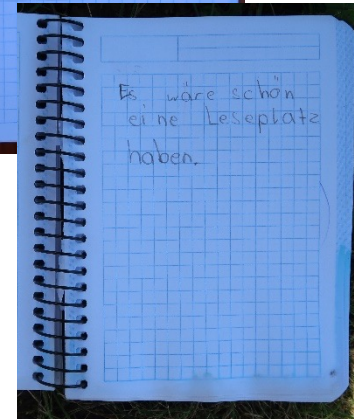 Es wäre schön
eine Leseplatz
haben.